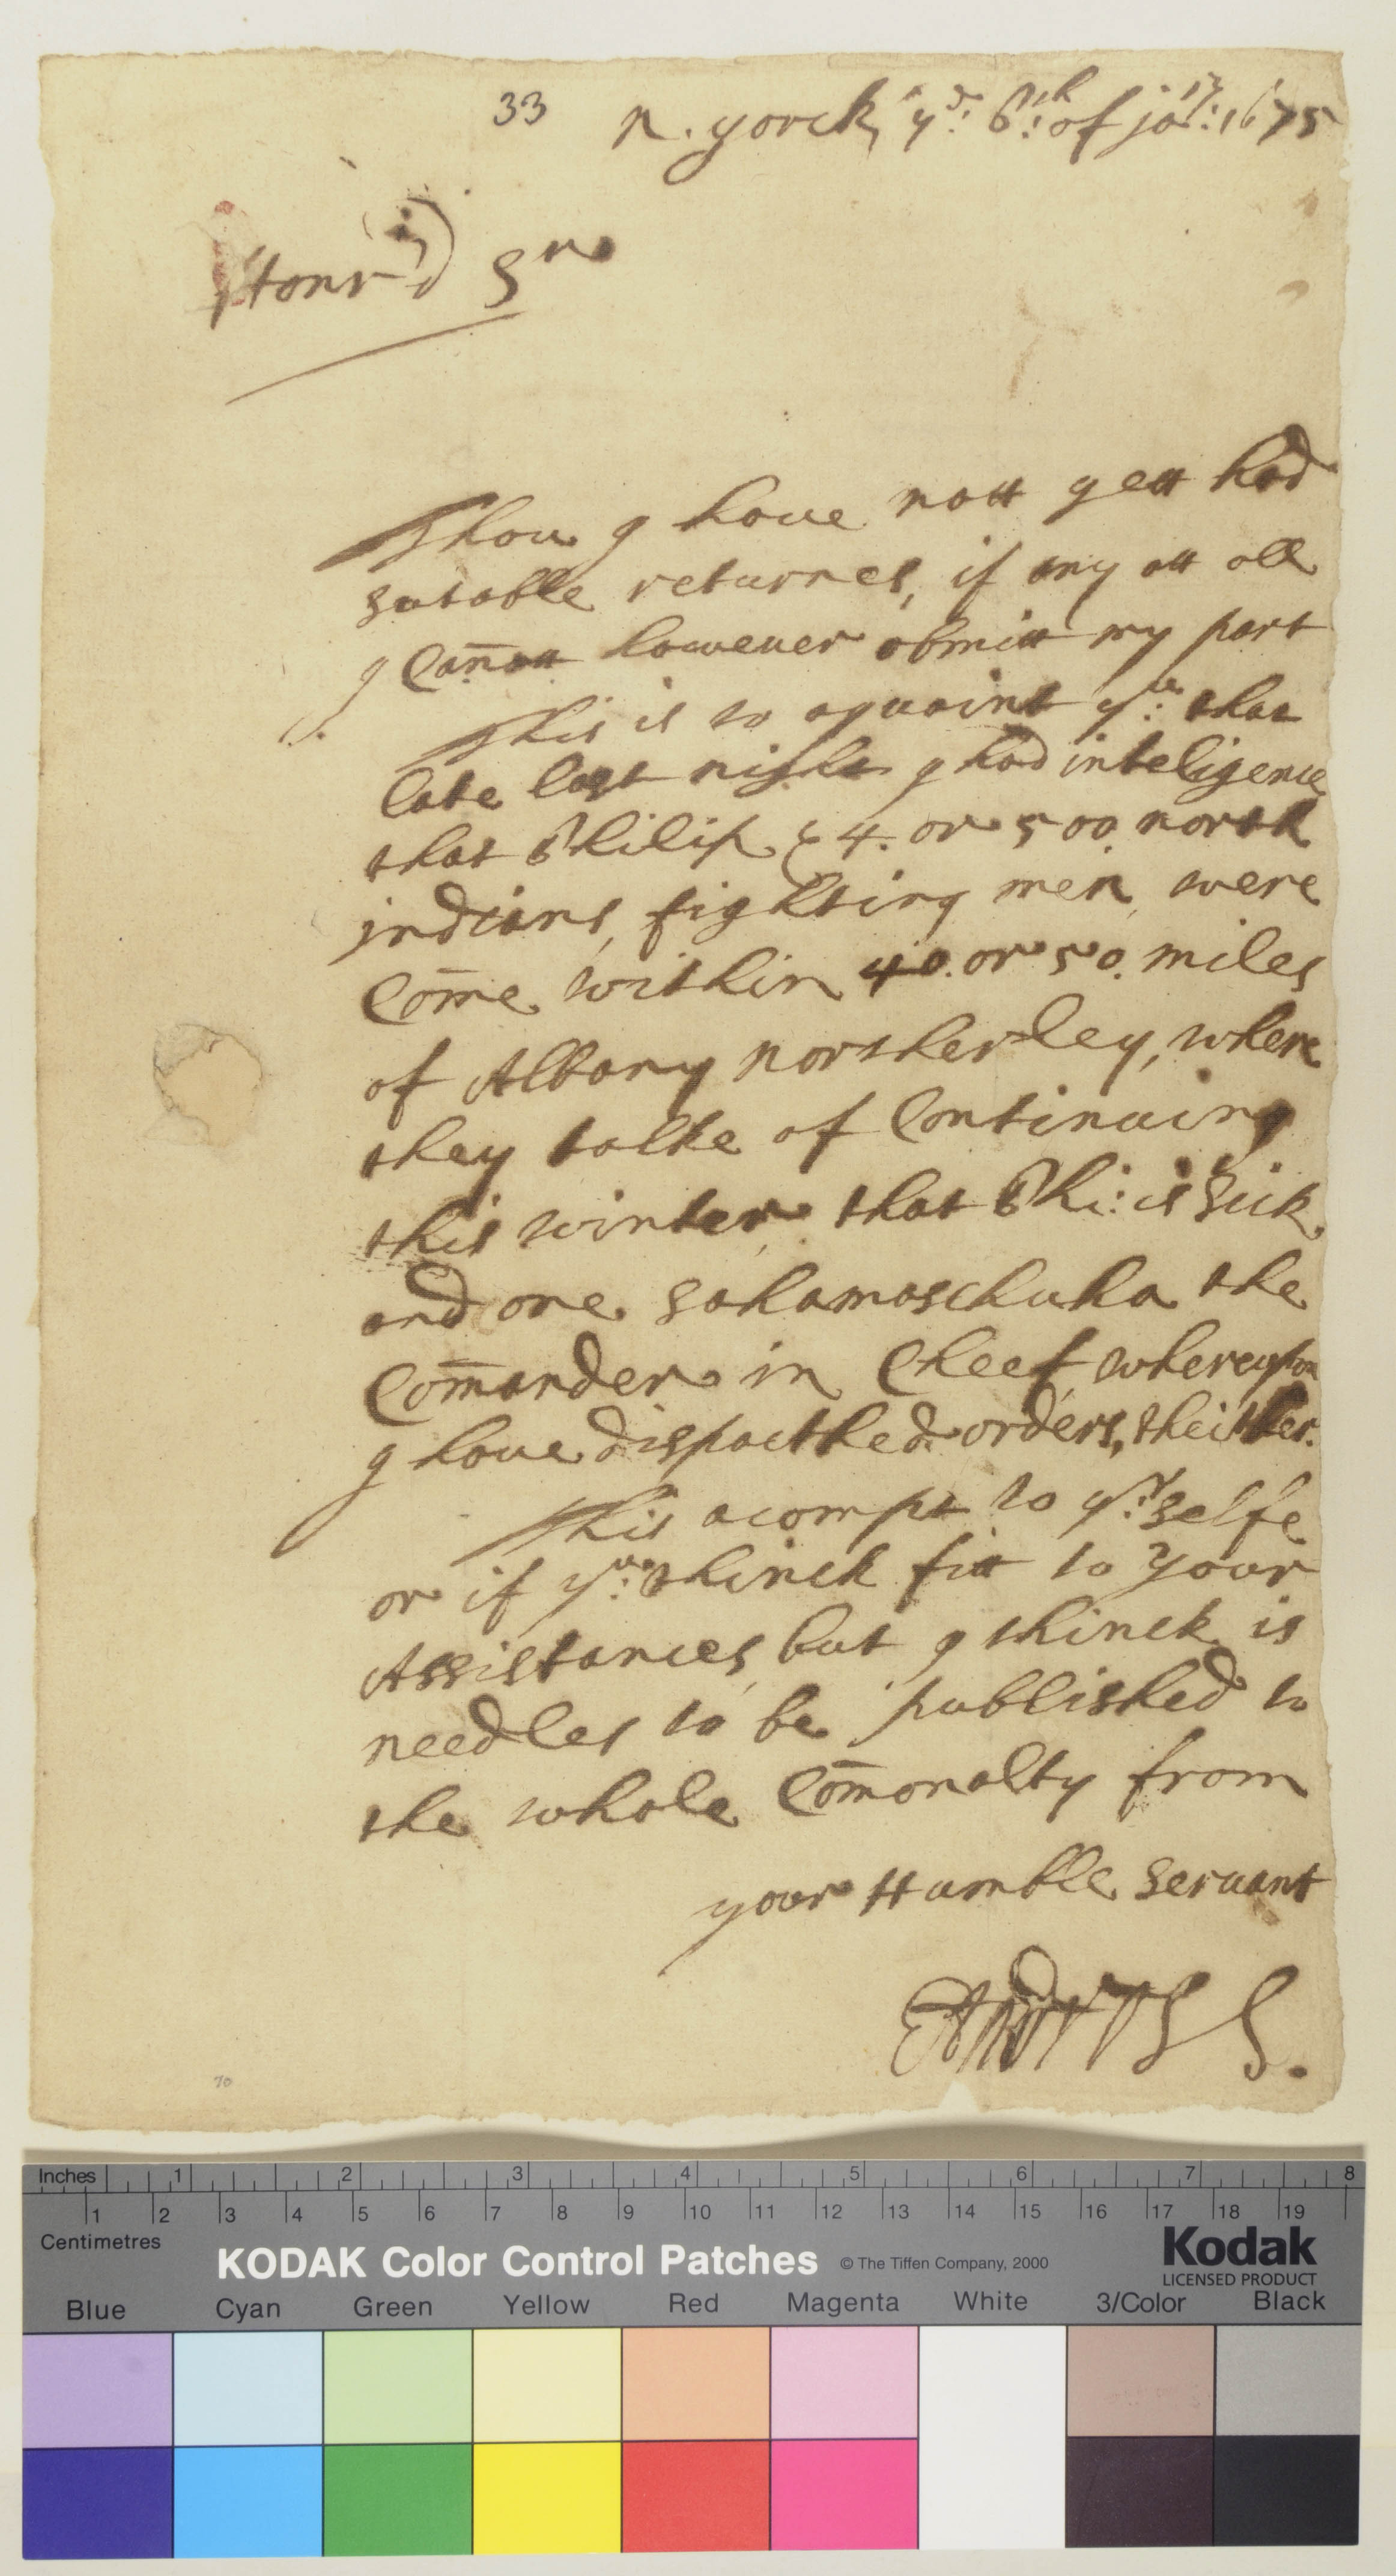 33
N. yorck, ye: 6th: of jary: 1675
Honrd Sr
Thou I haue nott yett had
sutable returnes, if any att all
I Cañott however obmitt my part
This is to aquaint yu: that
late last night I had inteligence
that Philip & 4. or 500. north
indians, fighting men, were
Come within 40. or 50. miles
of Albany northerley, where
they talke of Continuing
this winter that Phi: is Sick
and one Sahamoschuha the
Comander in Cheef whereupon
I haue dispatched orders, theither.
This acompt to yr: selfe
or if yu: thinck fitt to your
Assistances, but I thinck is
needles to be published to
the whole Comonalty from
your Humble Seruant
EAndross S.
70
Inches 1 2 3 4 5 6 7 8
1 2 3 4 5 6 7 8 9 10 11 12 13 14 15 16 17 18 19
Centimetres
KODAK Color Control Patches © The Tiffen Company, 2000
Kodak
LICENSED PRODUCT
Blue Cyan Green Yellow Red Magenta White 3/Color Black